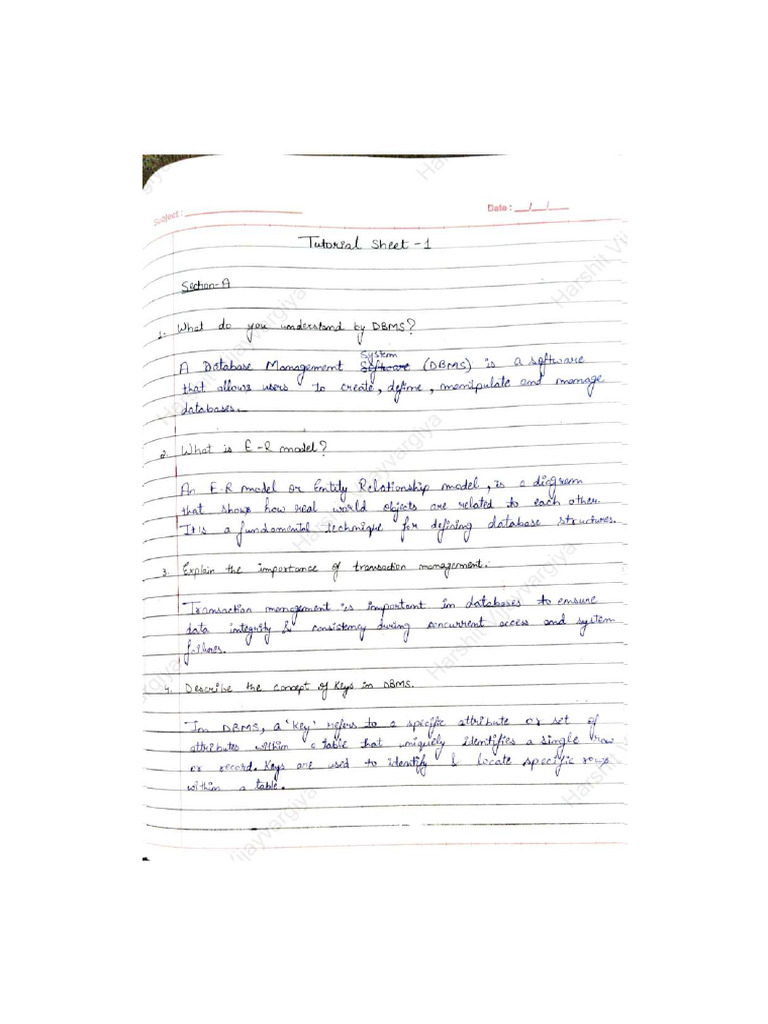 Subject :
Date : __/__/__
Tutorial Sheet - 1
Section-A
1. What do you understand by DBMS?
System
A Database Management Software (DBMS) is a software
that allows users to create, define, manipulate and manage
databases.
2. What is E-R model?
An E-R model or Entity Relationship model, is a diagram
that shows how real world objects are related to each other.
It is a fundamental technique for defining database structures.
3. Explain the importance of transaction management.
Transaction management is important in databases to ensure
data integrity & consistency during concurrent access and system
failures.
4. Describe the concept of Keys in DBMS.
In DBMS, a 'Key' refers to a specific attribute or set of
attributes within a table that uniquely identifies a single row
or record. Keys are used to identify & locate specific rows
within a table.
Harshit Vijayvargiya